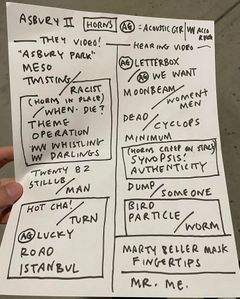 ASBURY II HORNS AG = ACOUSTIC GTR
THEY VIDEO!
"ASBURY PARK"
MESO
TWISTING/
RACIST
(HORN IN PLACE)
WHEN·DIE?
THEME
OPERATION
WHISTLING
DARLINGS
TWENTY 82
STILLUB/
MAN
HOT CHA!/
TURN
AG LUCKY
ROAD
ISTANBUL
HEARING VIDEO
AG LETTERBOX
AG WE WANT
MOONBEAM/
WOMEN MEN
DEAD/
CYCLOPS
MINIMUM
(HORNS CREEP ON STAGE)
SYNOPSIS!
AUTHENTICITY
DUMP/
SOMEONE
BIRD
PARTICLE/
WORM
MARTY BELLER MASK
FINGERTIPS
MR. ME.